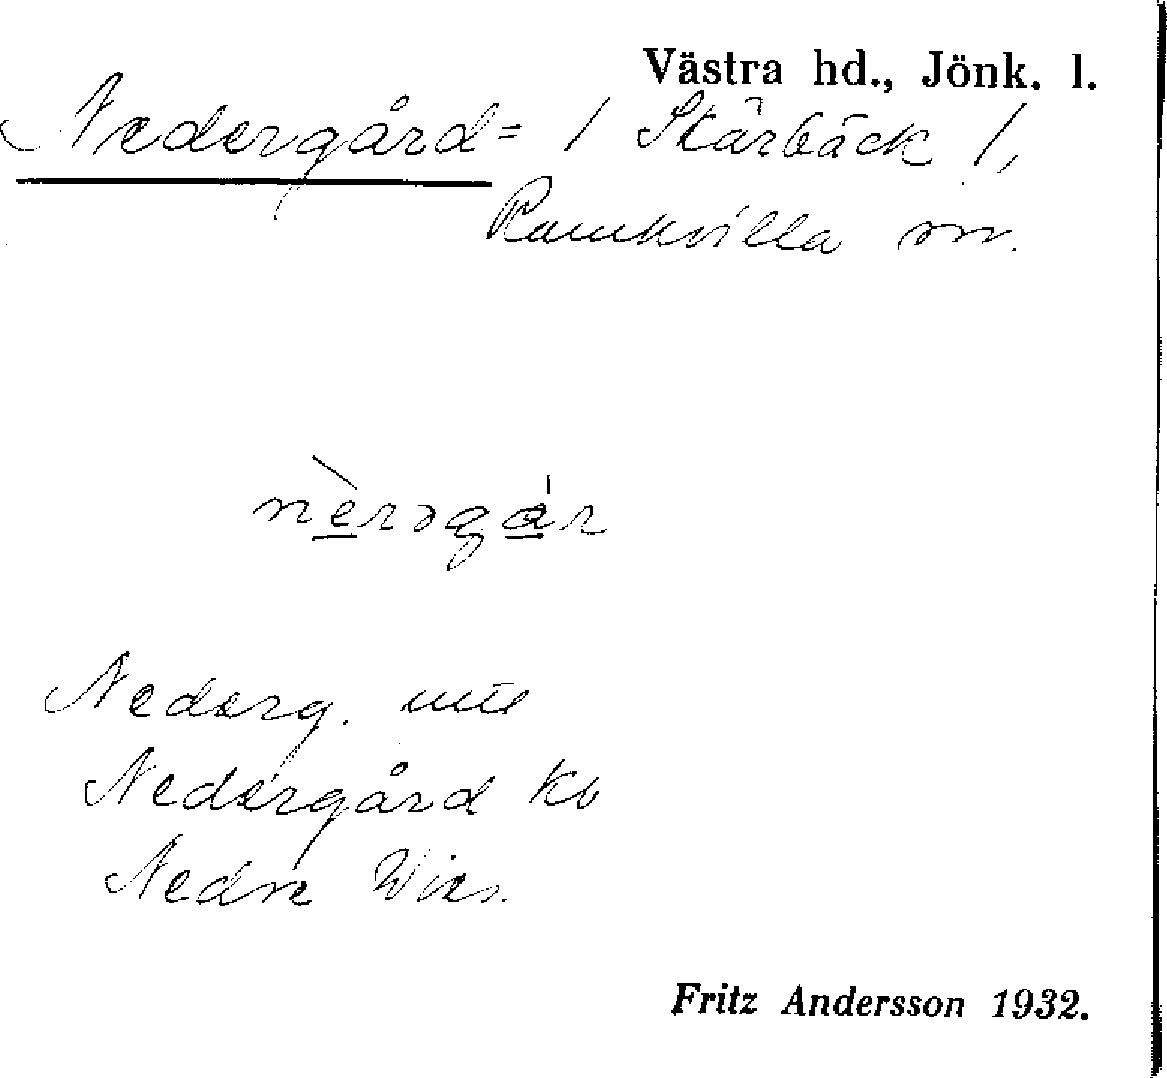 Västra hd., Jönk. l.
Nedergård = / Skärbäck /,
Ramkvilla sn.
nèrəgár
Nederg. uttl
Nedergård Kb
Nedre Wies.
Fritz Andersson 1932.